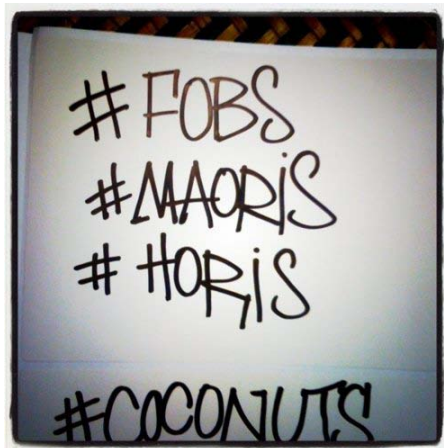 #FOBS
#MAORiS
#HORiS
#COCONUTS